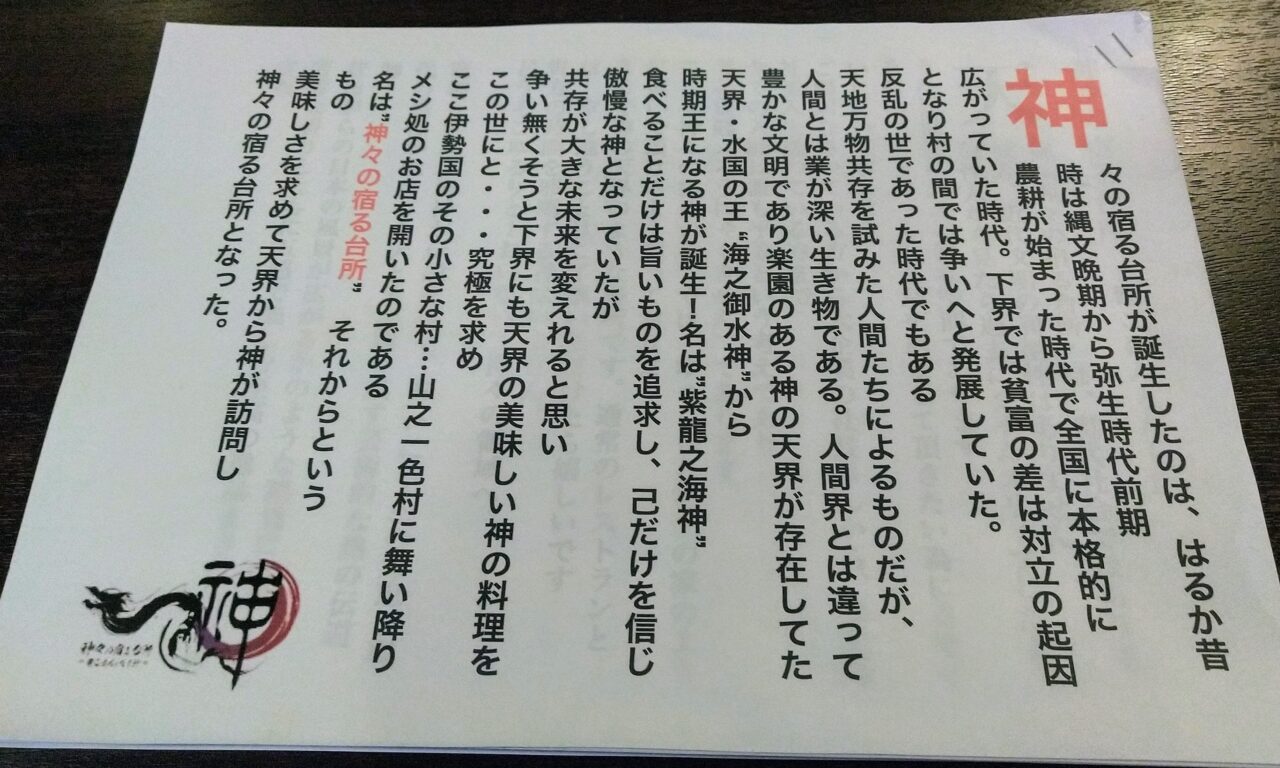 神々の宿る台所が誕生したのは、はるか昔
時は縄文晩期から弥生時代前期
農耕が始まった時代で全国に本格的に
広がっていた時代。下界では貧富の差は対立の起因
となり村の間では争いへと発展していた。
反乱の世であった時代でもある
天地万物共存を試みた人間たちによるものだが、
人間とは業が深い生き物である。人間界とは違って
豊かな文明であり楽園のある神の天界が存在してた
天界・水国の王“海之御水神”から
時期王になる神が誕生！名は“紫龍之海神”
食べることだけは旨いものを追求し、己だけを信じ
傲慢な神となっていたが
共存が大きな未来を変えれると思い
争い無くそうと下界にも天界の美味しい神の料理を
この世にと・・・究極を求め
ここ伊勢国のその小さな村…山之一色村に舞い降り
メシ処のお店を開いたのである
名は“神々の宿る台所”　それからという
もの
美味しさを求めて天界から神が訪問し
神々の宿る台所となった。
神
神々の宿る台所